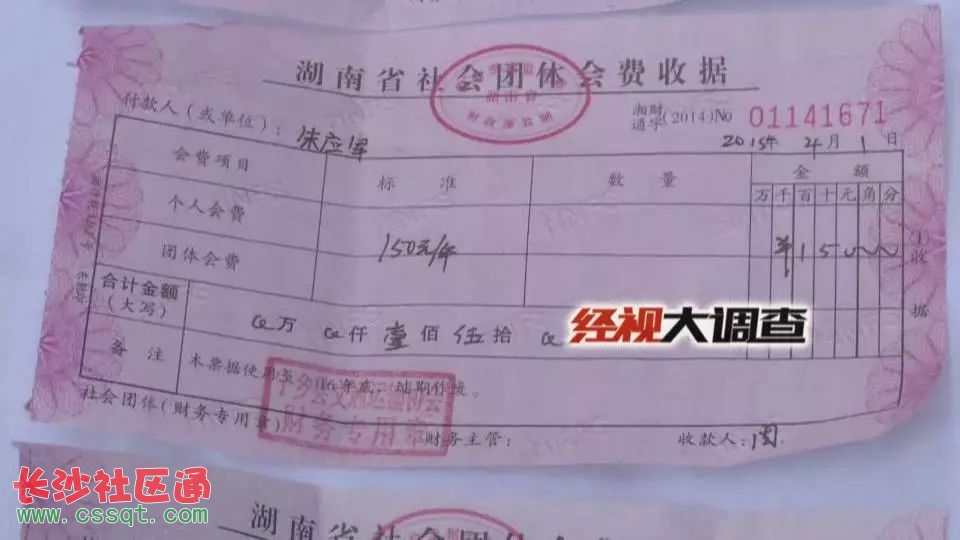 湖南省社会团体会费收据
湖南省
财政部监制
湘财通字(2014)No 01141671
付款人(或单位): 朱应军
2015年 4月 1日
会费项目 标准 数量 金额
万千百十元角分
个人会费
团体会费 150元/年 ¥150
合计金额(大写) 万 仟 壹佰 伍拾
备注 本票据使用至2016年底,过期作废。
财务专用章
社会团体(财务专用章) 财务主管: 收款人:
收据
经视大调查
长沙社区通
www.cssqt.com
湖南省社会团体会费收据